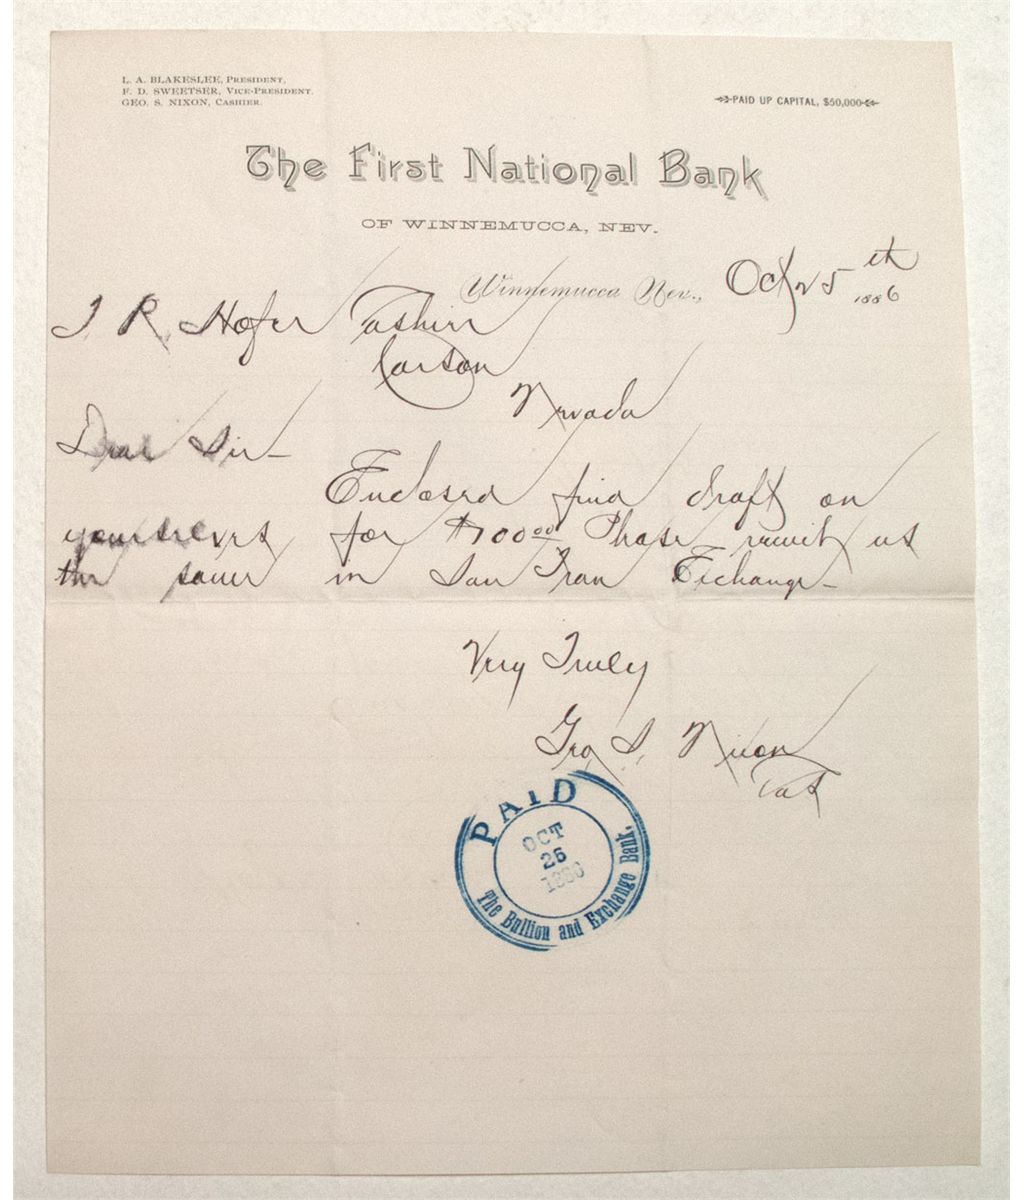 L. A. BLAKESLEE, PRESIDENT,
F. D. SWEETSER, VICE-PRESIDENT.
GEO. S. NIXON, CASHIER.
PAID UP CAPITAL, $50,000
The First National Bank
OF WINNEMUCCA, NEV.
Winnemucca Nev., Oct 25th 1886
T. R. Hofer Cashier
Carson
Nevada
Dear Sir—
Enclosed find draft on
yourselves for $700 00 Please remit us
the same in San Fran Exchange—
Very Truly
Geo S. Nixon
Cas
PAID
OCT
26
The Bullion and Exchange Bank.